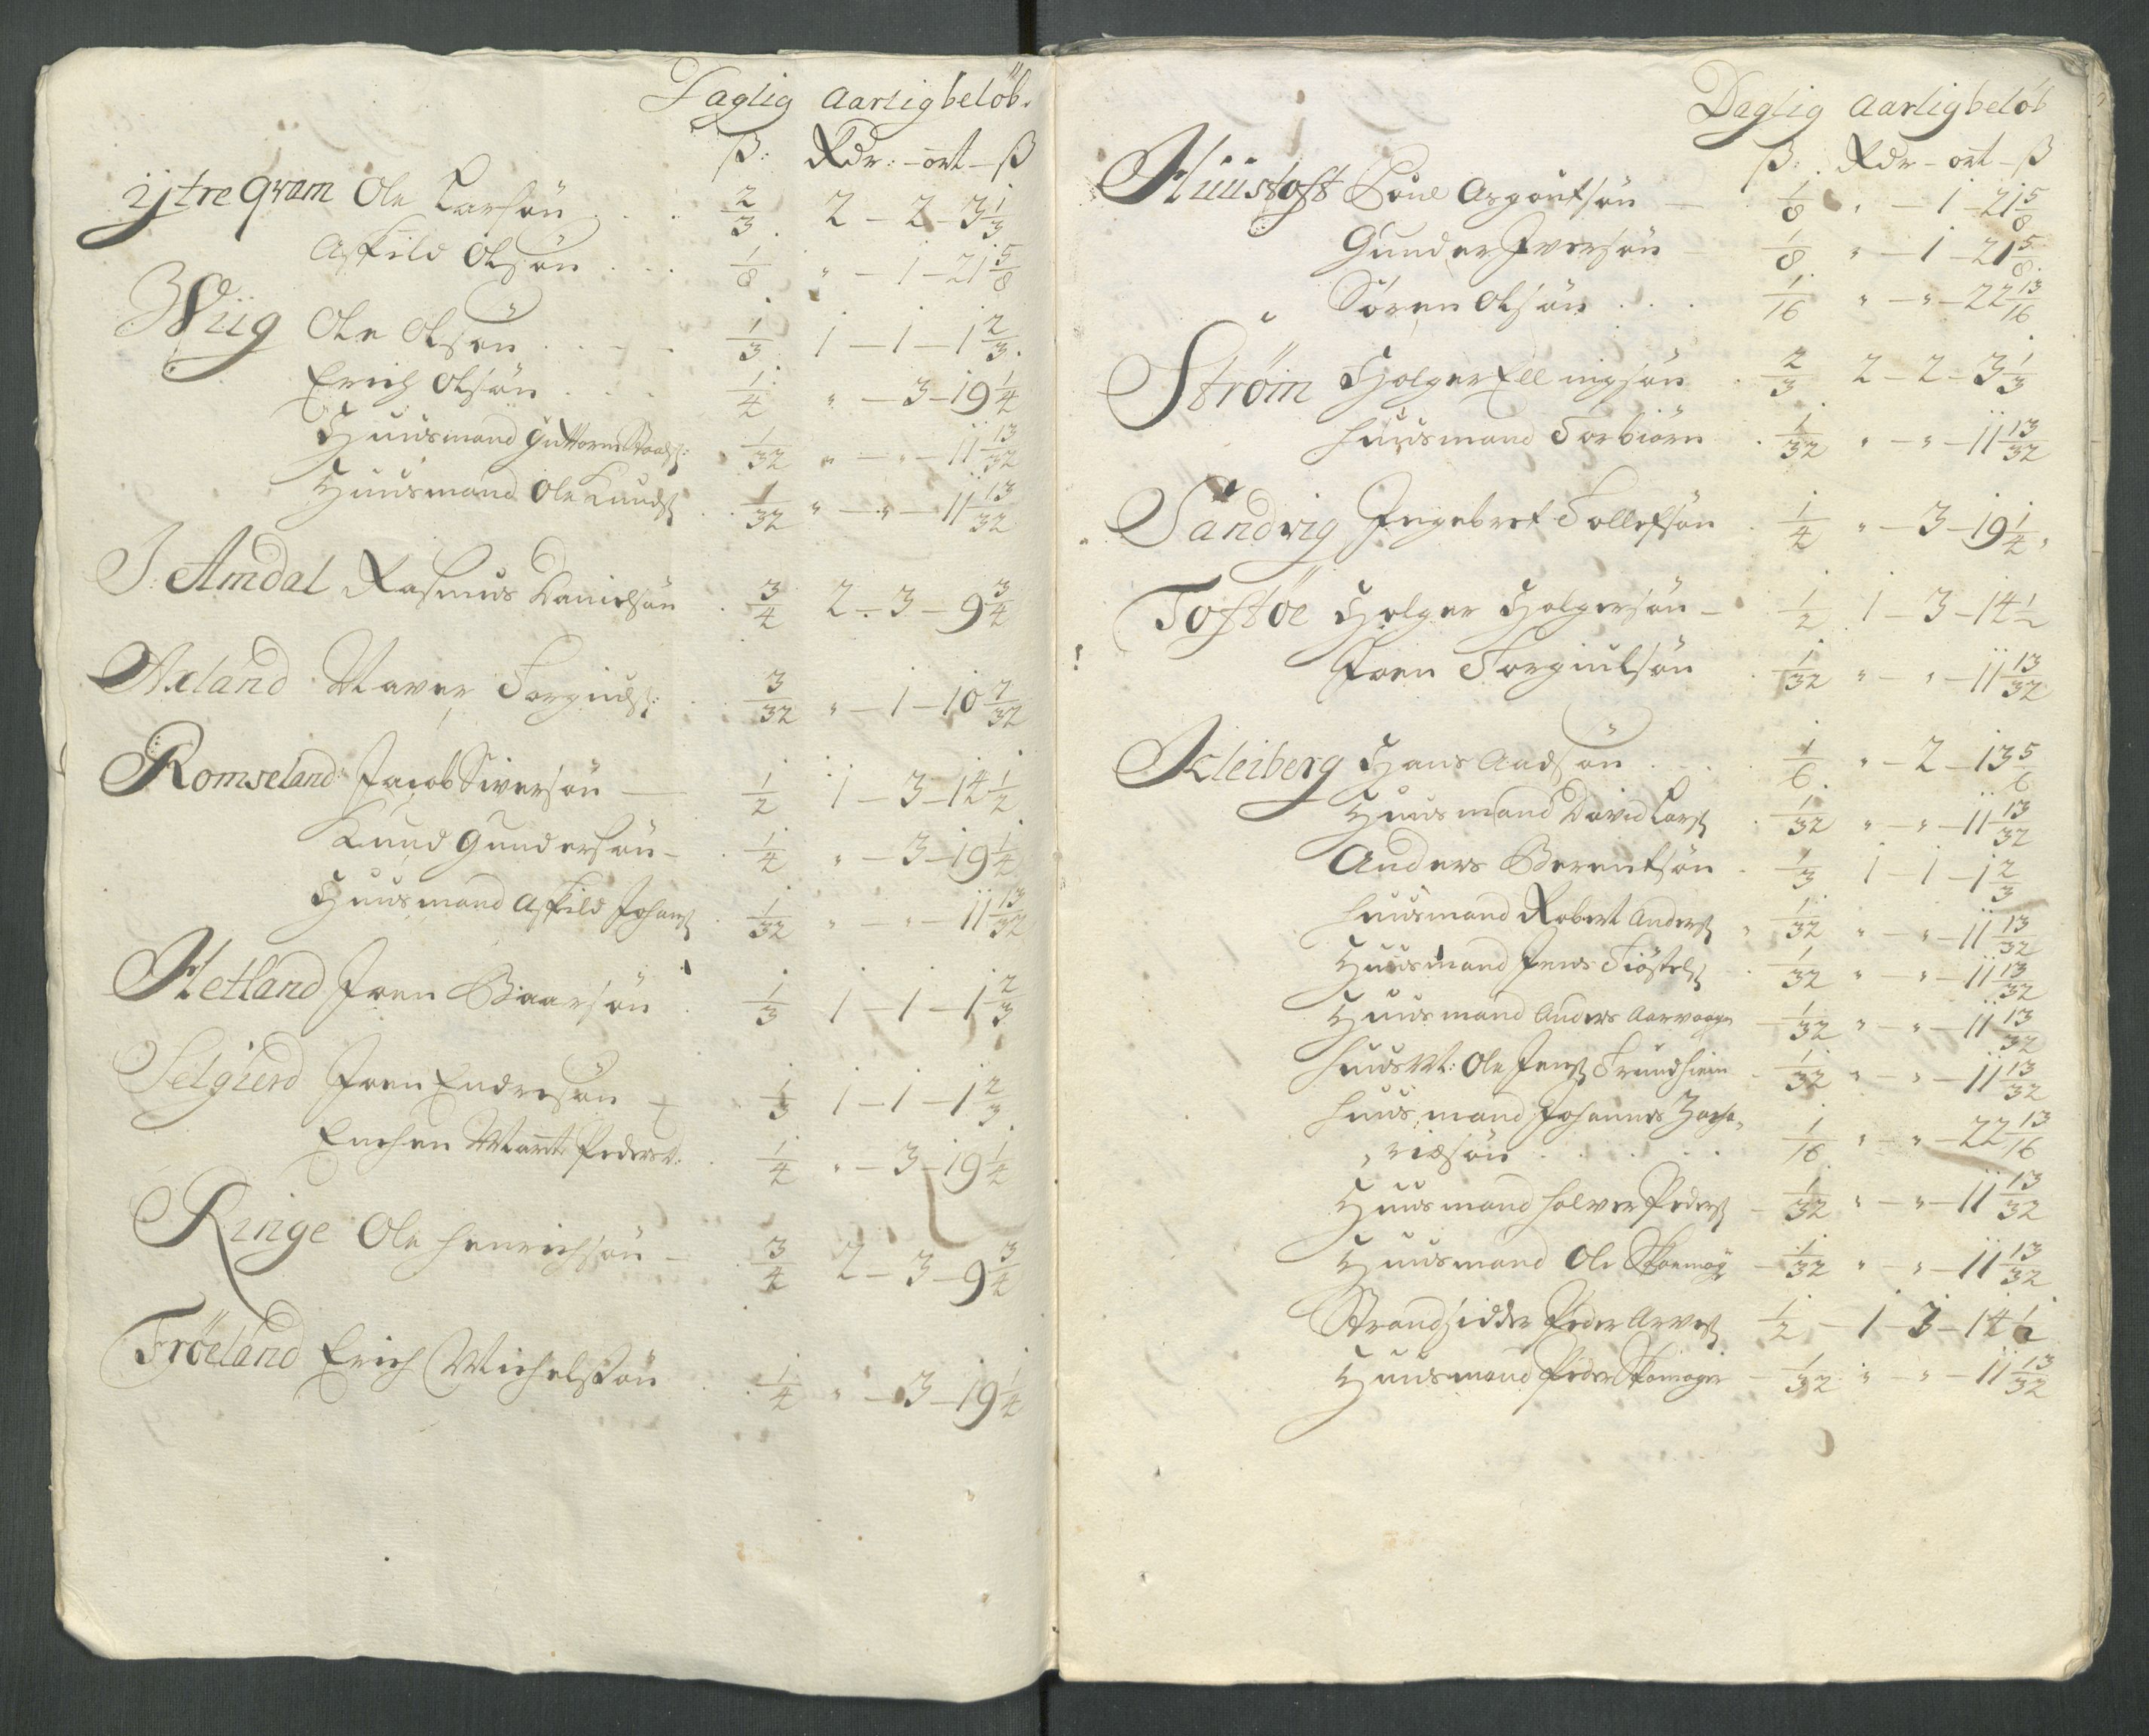 Daglig Aarlig belöb.
ß: Rdr: - ort - ß
ÿtre Qvam Ole Larsön . . . 2/3 2 - 2 - 3 1/3
Askild Olsön . . . 1/8 " - 1 - 21 5/8
Wiig Ole Olsön . . . 1/3 1 - 1 - 1 2/3
Erich Olsön . . . 1/4 " - 3 - 19 1/4
Huusmand Guttorm 1/32 " - " - 11 13/32
Huusmand Ole Knuds: 1/32 " - " - 11 13/32
I: Amdal Rasmus Danielsön . 3/4 2 - 3 - 9 3/4
Axland Torgiuls: . 3/32 " - 1 - 10 7/32
Romseland: Jacob Siversön — 1/2 1 - 3 - 14 1/2
Knud Gundersön - 1/4 " - 3 - 19 1/4
Huusmand Askild Johans: 1/32 " - " - 11 13/32
Hetland Joen Baarsön . 1/3 1 - 1 - 1 2/3
Selgierd Joen Endresön - 1/3 1 - 1 - 1 2/3
Enchen Marrit Pedersd: . 1/4 " - 3 - 19 1/4
Ringe Ole Henrichsön - 3/4 2 - 3 - 9 3/4
Fröeland Erich Michelsön . 1/4 " - 3 - 19 1/4
Daglig Aarlig belöb
ß: Rdr - ort - ß
Huustoft Poul Asgoutsön — 1/8 " - 1 - 21 5/8
Gunder Iversön - 1/8 " - 1 - 21 5/8
Sören Olsön . . . 1/16 " - " - 22 13/16
Ströim Holger Ellingsön . 2/3 2 - 2 - 3 1/3
Huusmand Torbiörn . 1/32 " - " - 11 13/32
Sandvig Ingebret Tollefsön . 1/4 " - 3 - 19 1/4
Toftöe Holger Holgersön - 1/2 1 - 3 - 14 1/2
Joen Torgiulsön . 1/32 " - " - 11 13/32
Kleiberg Hans Aadsön . . . 1/6 " - 2 - 13 5/6
Huusmand David Lars: . 1/32 " - " - 11 13/32
Anders Berentsön . 1/3 1 - 1 - 1 2/3
Huusmand Robert Anders: " 1/32 " - " - 11 13/32
Huusmand Jens Tiöstels: . 1/32 " - " - 11 13/32
Huusmand Anders Aarvaagn - 1/32 " - " - 11 13/32
Huus M: Ole Jens: Trundhiem . 1/32 " - " - 11 13/32
Huusmand Johannes Zacha„
„riæsön . . . . 1/16 " - " - 22 13/16
Huusmand Halvor Peders: - 1/32 " - " - 11 13/32
Huusmand Ole - 1/32 " - " - 11 13/32
Strandsidder Peder Arves: 1/2 - 1 - 3 - 14 1/2
Huusmand Peder Skomager - 1/32 " - " - 11 13/32